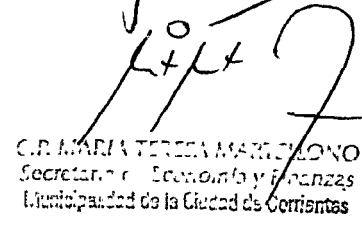 C.P. MARIA TERESA
Secretaria de Economía y Finanzas
Municipalidad de la Ciudad de Corrientes